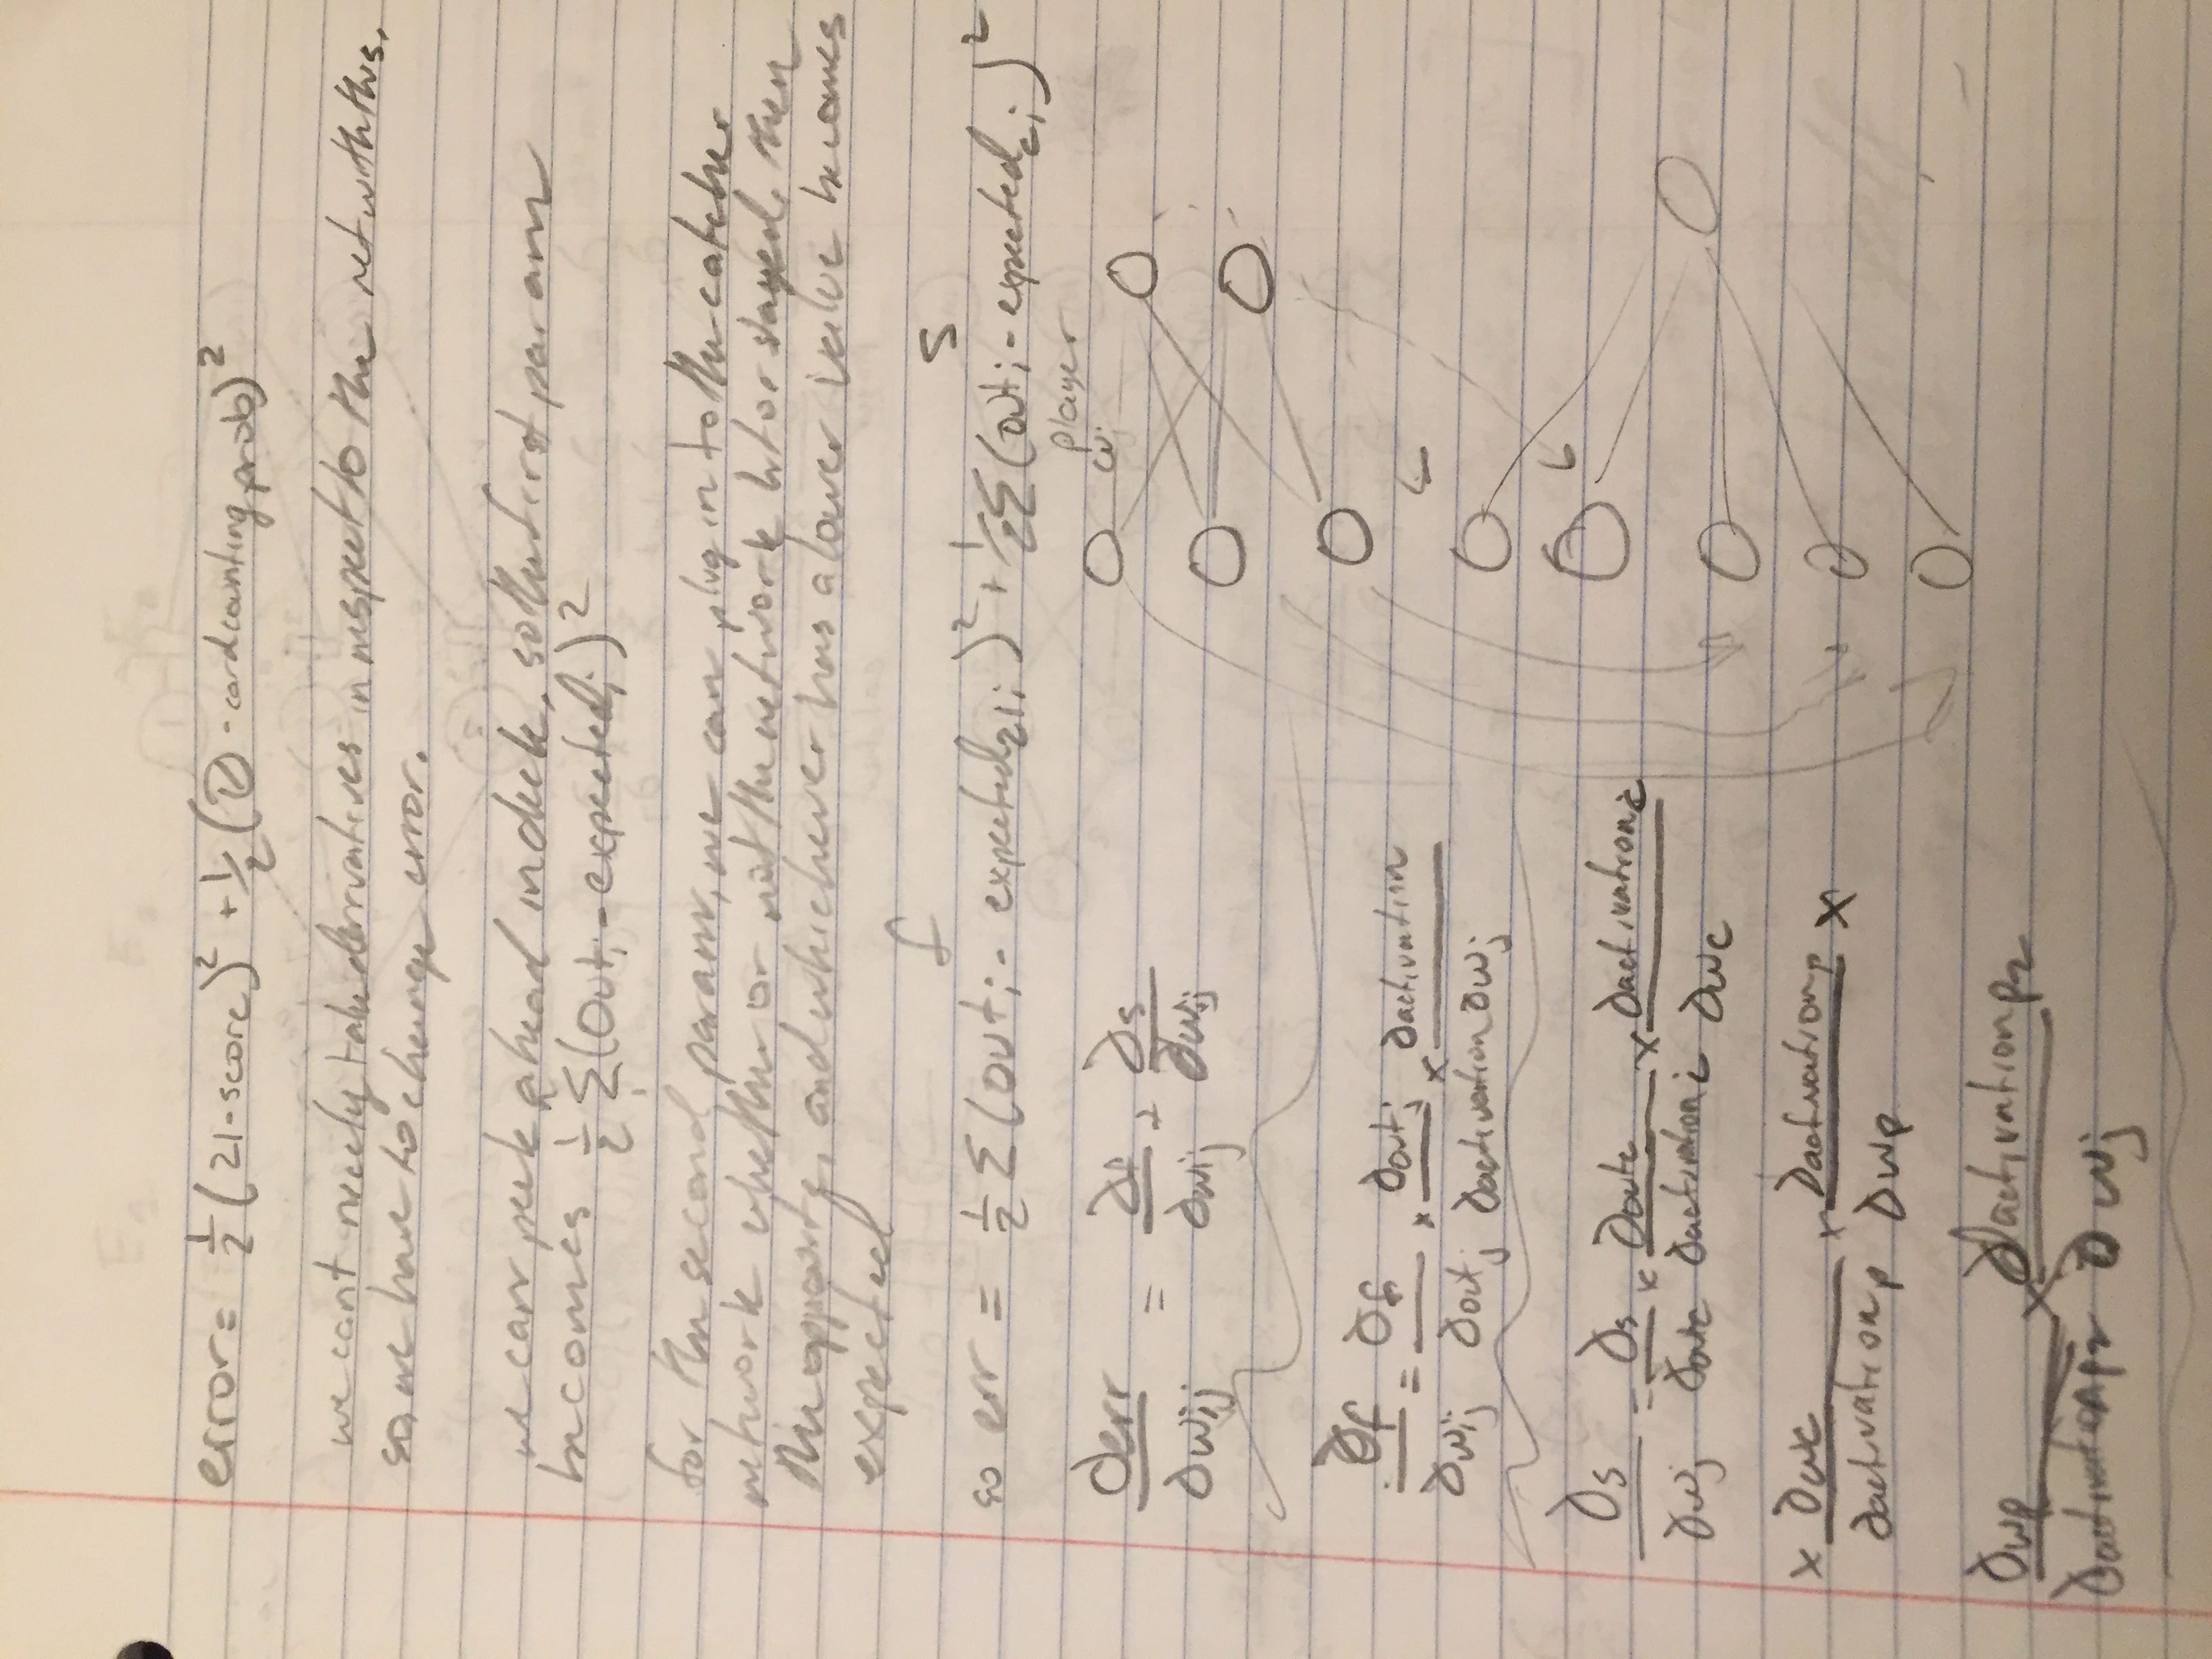 error = ½(21-score)² + ½(0 - cardcounting prob)²
we cant nicely take derivatives in respect to the net with this.
so, we have to change error.
we can peek ahead in deck, so the first param
becomes ½ Σ(Out_i - expected_i)²
i
for the second param, we can plug in to the catcher
network whether or not the network hit or stayed, then
the opposite, and whichever has a lower value becomes
expected
f S
so err = ½ Σ(out_i - expected_21i)² + ½Σ(out_i - expected_ci)²
player
w_j
∂err/∂w_ij = ∂f/∂w_ij + ∂s/∂w_ij
∂f/∂w_ij = ∂f/∂out_j × ∂out_j/∂activation × ∂activation/∂w_j
∂s/∂w_j = ∂s/∂out_c × ∂out_c/∂activation_c × ∂activation_c/∂w_c
× ∂w_c/∂activation_p × ∂activation_p/∂w_p ×
∂w_p/∂activation_p2 × ∂activation_p2/∂w_j